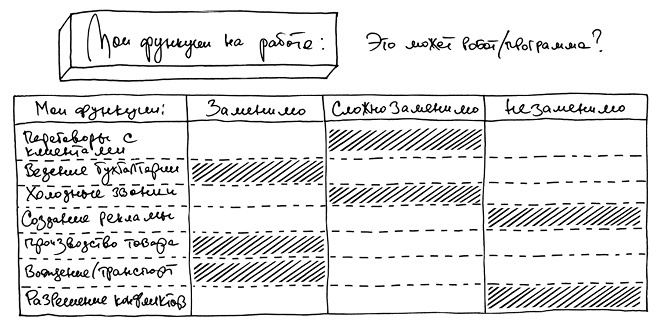 Мои функции на работе:
Это может робот/программа?
Мои функции: Заменимо Сложно заменимо Незаменимо
Переговоры с
клиентами
Ведение бухгалтерии
Холодные звонки
Создание рекламы
Производство товара
Вождение/транспорт
Разрешение конфликтов